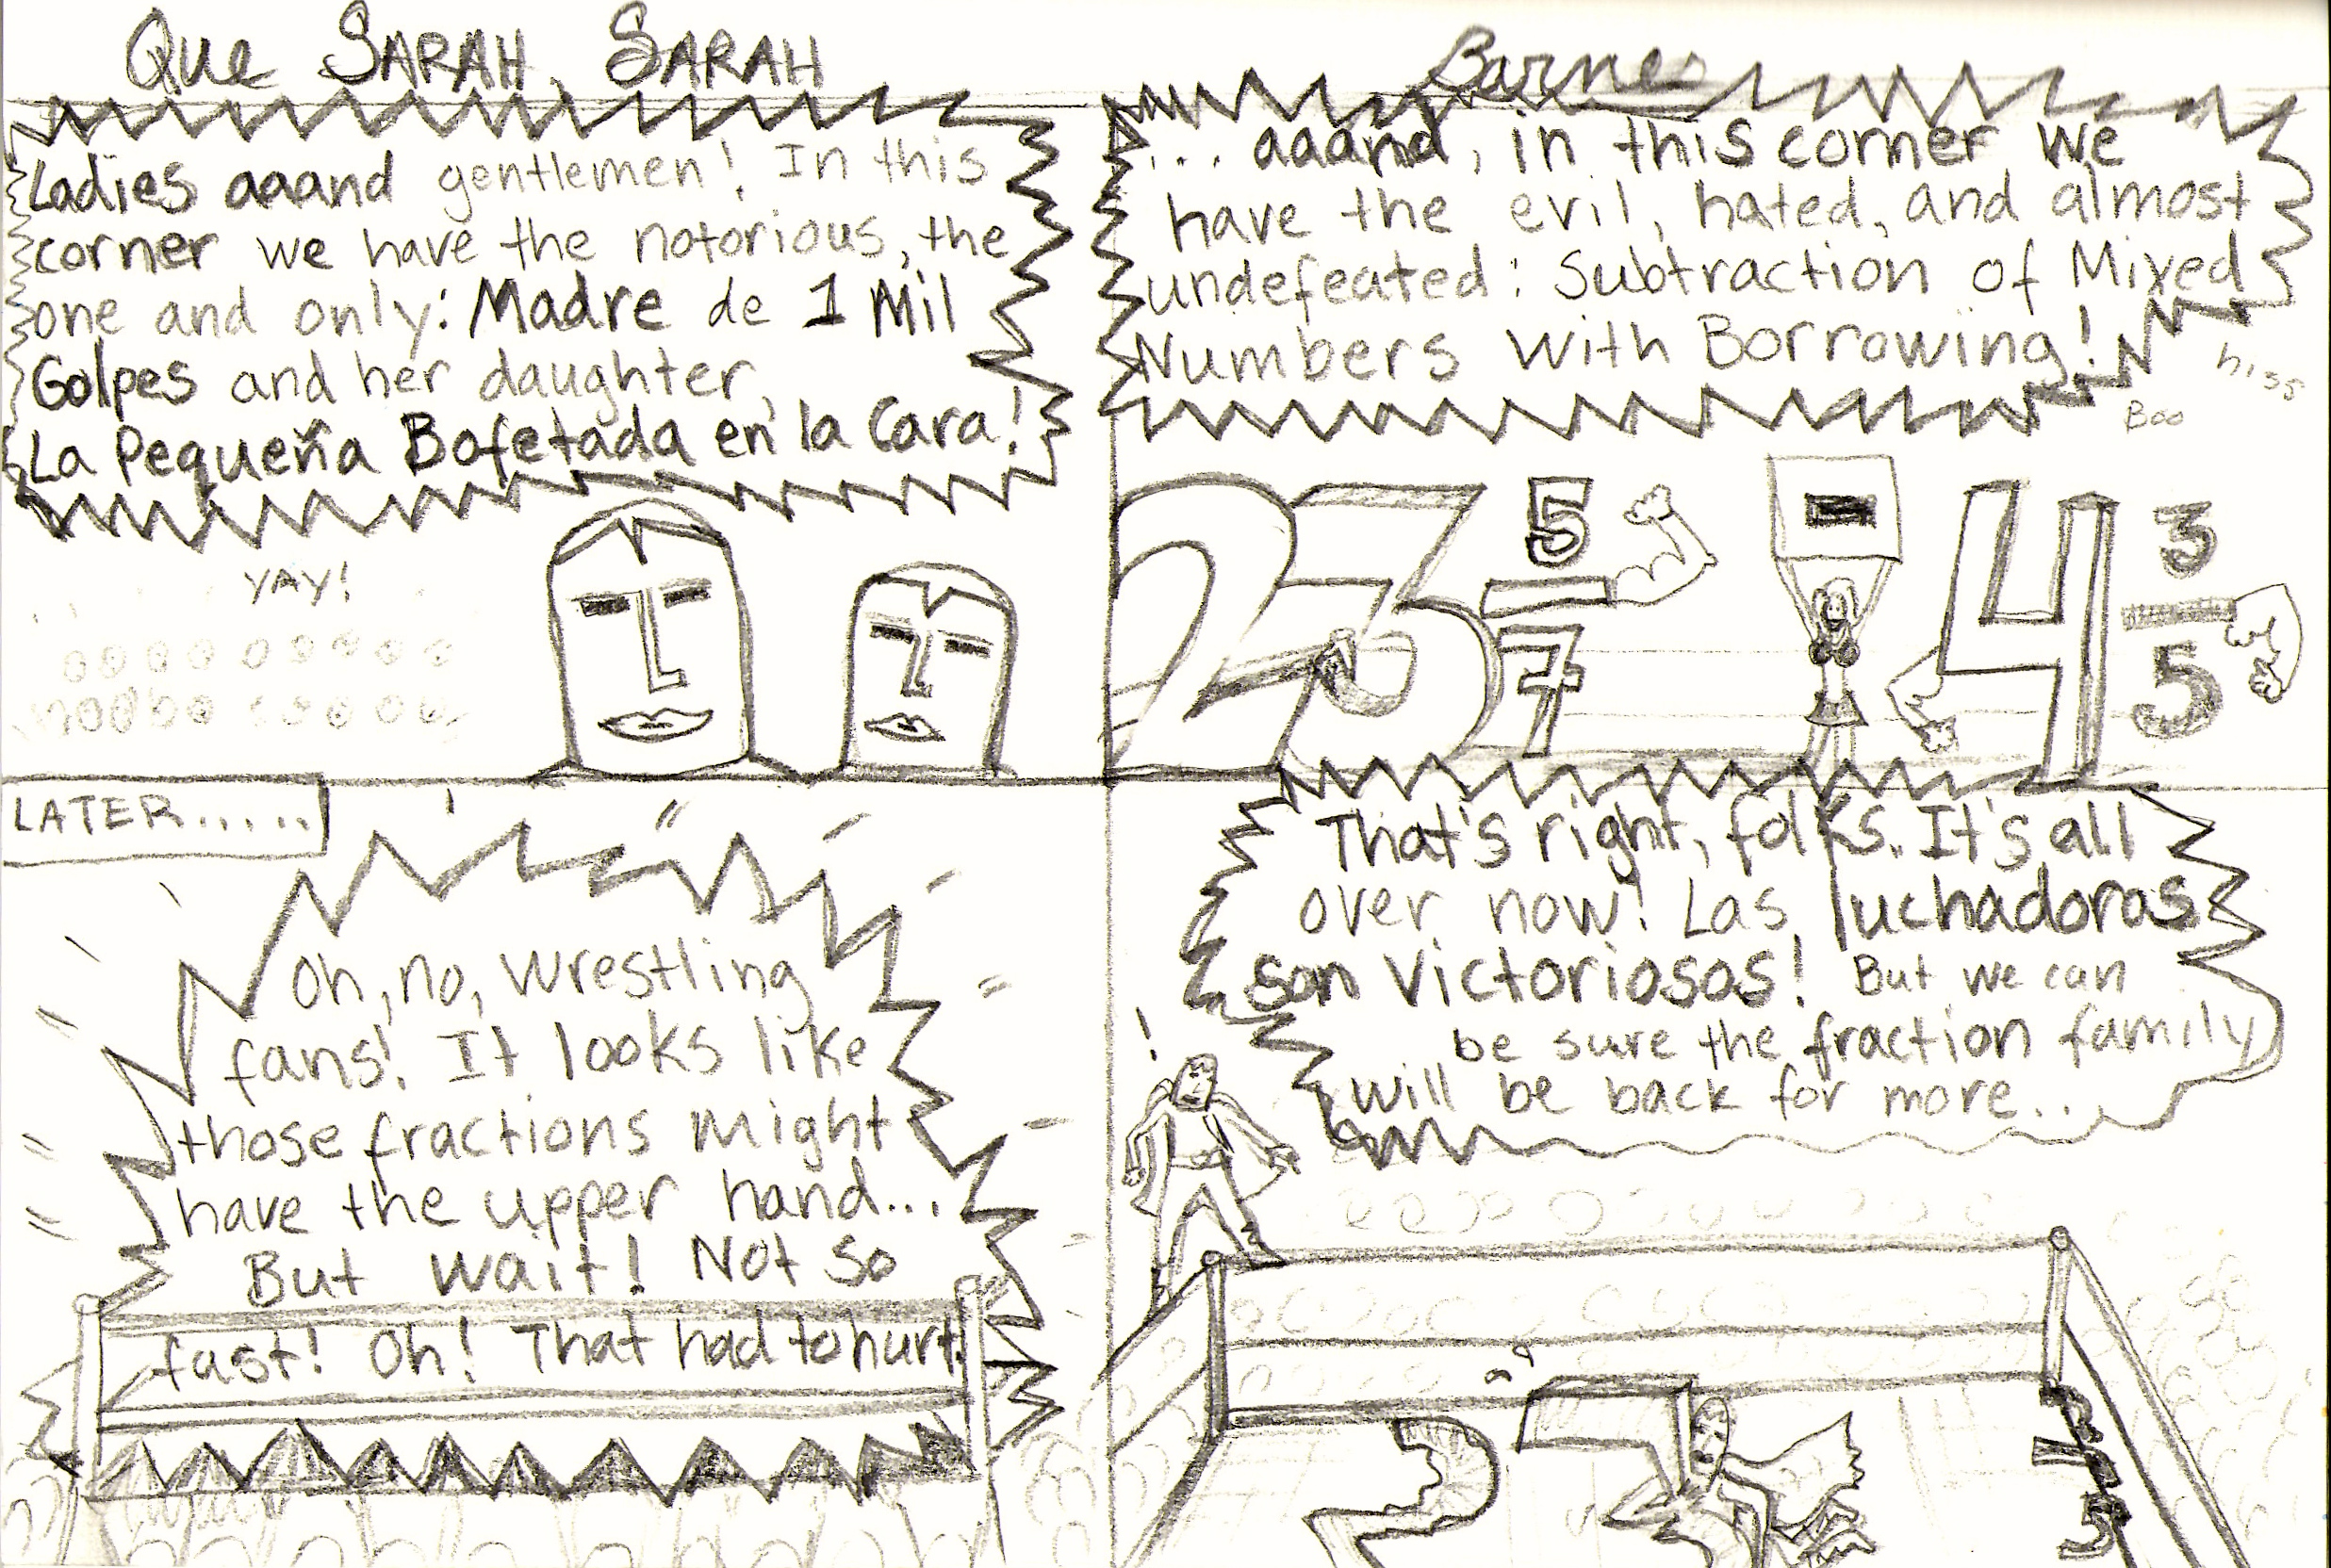 Que SARAH, SARAH
Barnes
Ladies aaand gentlemen! In this
corner we have the notorious, the
one and only: Madre de 1 Mil
Golpes and her daughter,
La Pequeña Bofetada en la Cara!
YAY!
... aaand, in this corner we
have the evil, hated, and almost
undefeated: Subtraction of Mixed
Numbers With Borrowing!
hiss
Boo
23 5/7 - 4 3/5
LATER.....
Oh, no, wrestling
fans! It looks like
those fractions might
have the upper hand...
But wait! Not so
fast! Oh! That had to hurt!
That's right, folks. It's all
over now! Las luchadoras
son Victoriosas! But we can
be sure the fraction family
will be back for more...
!